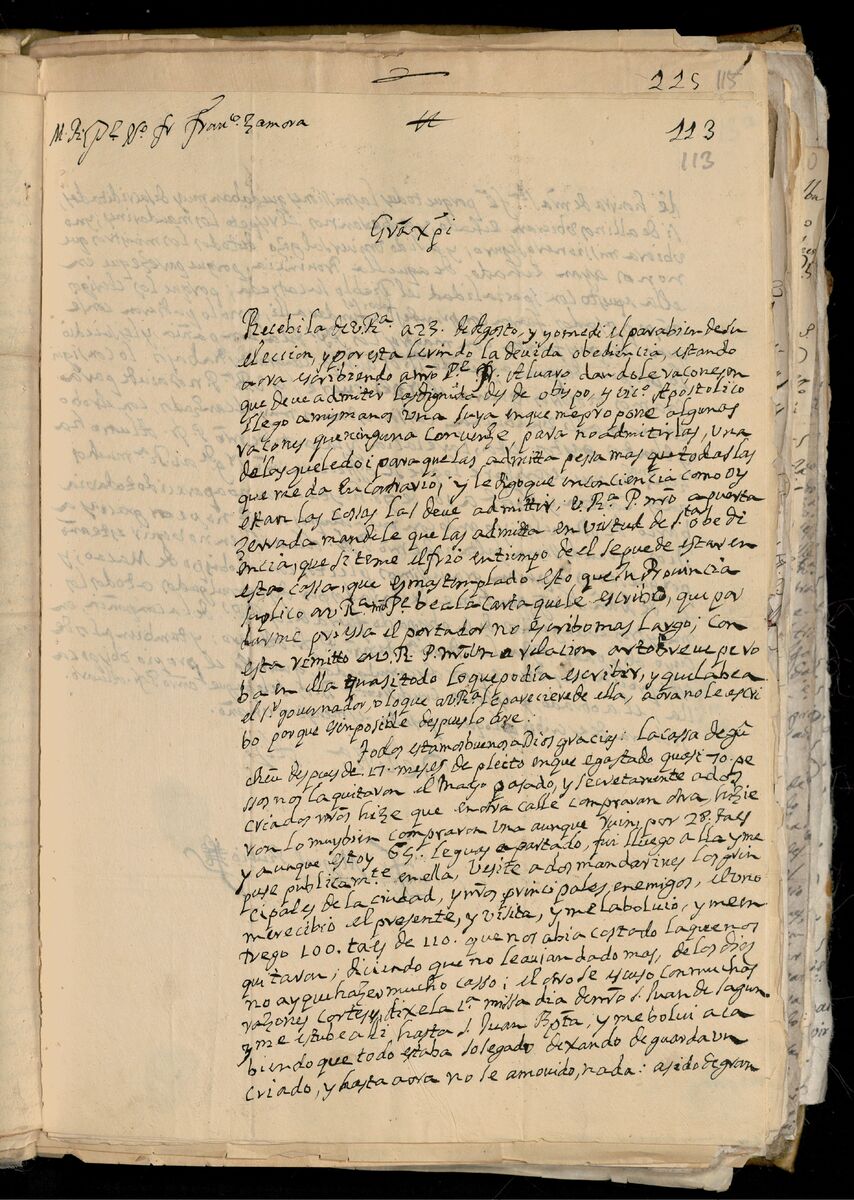 225 115
M. R. P. N. fr Franco. Zamora
113
113
Gra Xpi
Recebi la de V Ra. a 23. de Agosto, y yo me di el parabien de su
eleccion, y por esta le rindo la devida obediencia, estando
aora escribiendo a nro Pe. fr. Alvaro dandole raçones en
que deve admitir las dignidades de obispo, y vico. Apostolico
llego a mis manos una suya en que me propone algunas
raçones que ninguna convenze, para no admitirlas, una
de las que le doi para que las admitta pessa mas que todas las
que me da en contrario; y le digo que en conciencia como oy
estan las cossas las deve admittir; V. Ra. P. nro a puerta
zerrada mandele que las admitta en virtud de s.ta obedi
encia, que si teme el frio en tiempo de el se puede estar en
esta cassa, que es mas templado esto que in Provincia
suplico a V Ra. nro Pe. bea la carta que le escribo, que por
darme priessa el portador no escribo mas largo; con
esta remitto a V. R. P. nro una relacion arto breve pero
ba en illa quasi todo lo que podia escribir, y que la bea
el sr. governador, o lo que a V Ra. le pareciere de ella, aora no le escri
bo porque es inposible despues lo are:
Todos estamos buenos a Dios gracias: la cassa de
cheu despues de 17. meses de pleito en que e gastado quasi 70. pe
ssos nos la quitaron el Mayo pasado, y secretamente a dos
criados nros hize que en otra calle compraran otra, hizie
ron lo muy bien compraron una aunque ruin, por 28. taes
y aunque estoy 65. leguas apartado, fui lluego a lla y me
puse publicamte. en ella, Vesite a dos mandarines los prin
cipales de la ciudad, y nros principales enemigos, el uno
me recibio el presente, y visita, y me la bolvio, y me en
trego 100. taes de 110. que nos abia costado la que nos
quitaron; diciendo que no le avian dado mas, de los dies
no ay que hazer mucho casso; el otro se escuso con muchas
razones corteses, dixe la 1a. missa dia de nro s. Juan de Sagun
y me estube ali hasta s. Juan Bpta. y me bolui a ca
biendo que todo estaba sosegado dexando de guarda un
criado, y hasta aora no se a movido, nada: a sido de gran